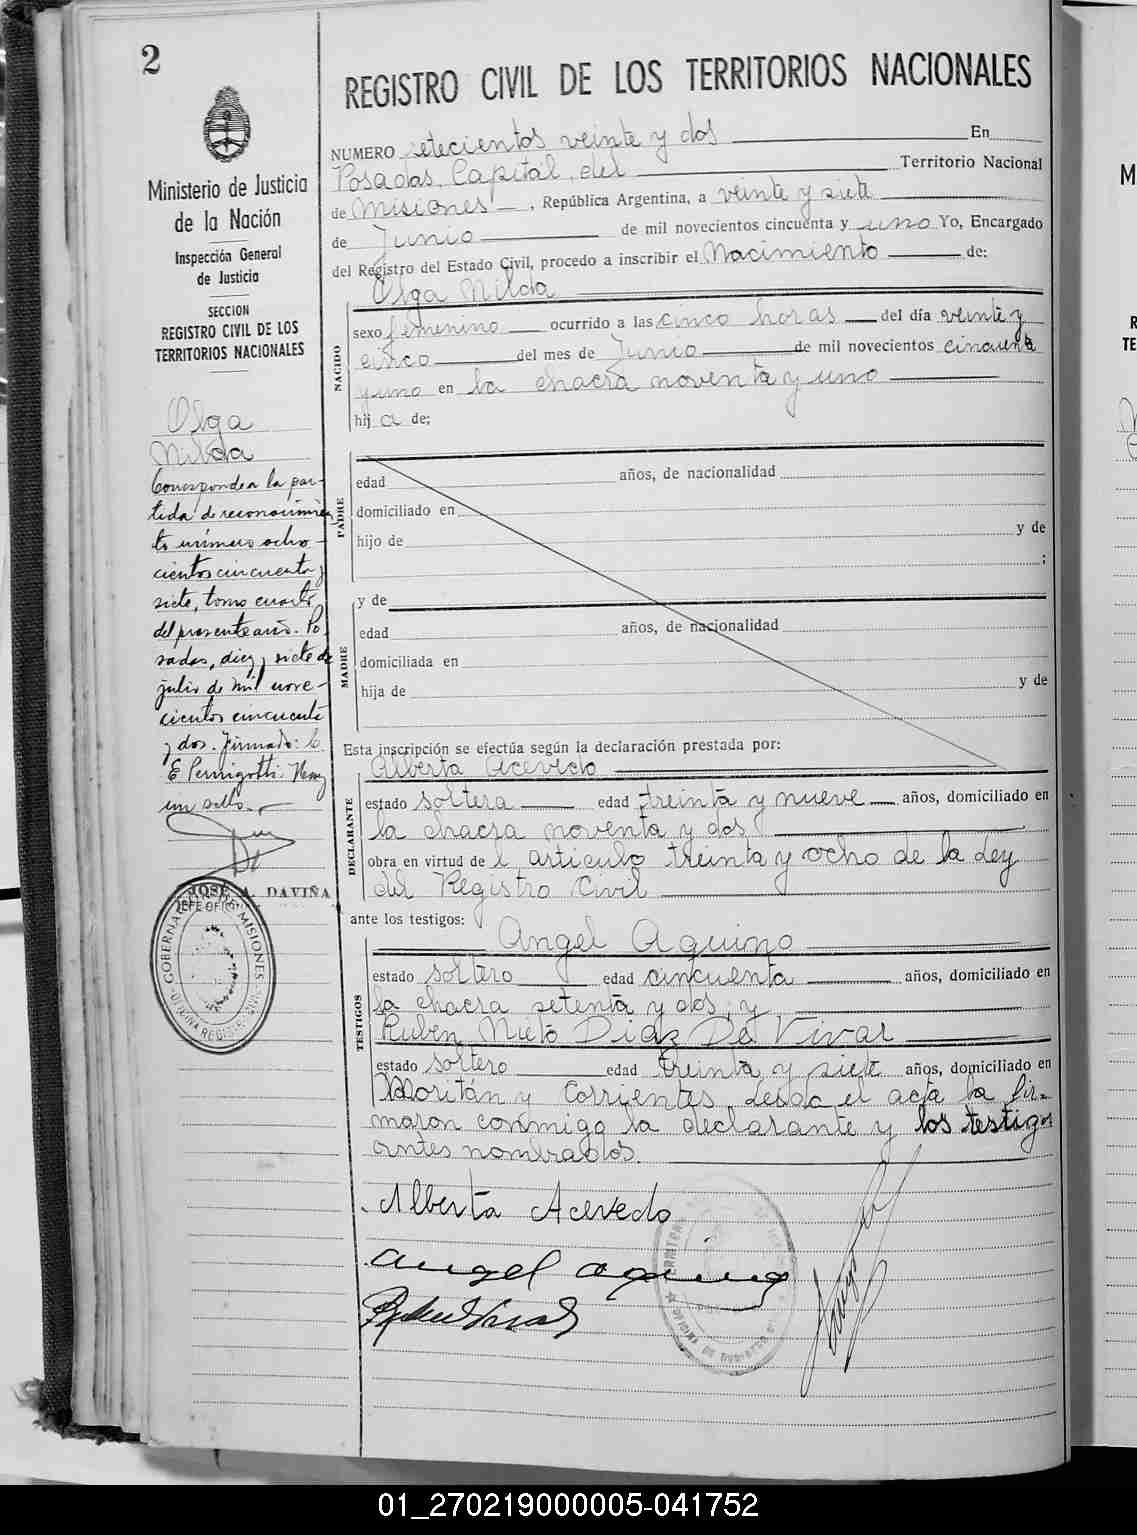 2
REGISTRO CIVIL DE LOS TERRITORIOS NACIONALES
Ministerio de Justicia
de la Nación
Inspección General
de Justicia
SECCION
REGISTRO CIVIL DE LOS
TERRITORIOS NACIONALES
Olga
Nilda
Corresponde a la par-
tida de reconocimien
to número ocho-
cientos cincuenta y
siete, tomo cuarto
del presente año. Po
sadas, diez y siete de
julio de mil nove-
cientos cincuenta
y dos. Firmado: C.
E. Pernigotti. Hay
un sello.
JOSE A. DAVIÑA
JEFE OFI
GOBERNA DE MISIONES
OFICINA REGIS CIVIL
NUMERO setecientos veinte y dos En
Posadas, Capital, del Territorio Nacional
de Misiones, República Argentina, a veinte y siete
de Junio de mil novecientos cincuenta y uno Yo, Encargado
del Registro del Estado Civil, procedo a inscribir el Nacimiento de:
Olga Nilda
NACIDO
sexo femenino ocurrido a las cinco horas del día veinte y
cinco del mes de Junio de mil novecientos cincuenta
y uno en la chacra noventa y uno
hija de;
PADRE
edad años, de nacionalidad
domiciliado en
hijo de y de
;
MADRE
y de
edad años, de nacionalidad
domiciliada en
hija de y de
Esta inscripción se efectúa según la declaración prestada por:
Alberta Acevedo
DECLARANTE
estado soltera edad treinta y nueve años, domiciliado en
la chacra noventa y dos
obra en virtud del articulo treinta y ocho de la Ley
del Registro Civil
ante los testigos:
Angel Aquino
TESTIGOS
estado soltero edad cincuenta años, domiciliado en
la chacra setenta y dos; y
Ruben Nieto Diaz De Vivar
estado soltero edad treinta y siete años, domiciliado en
Moritán y Corrientes, Leida el acta la fir-
maron conmigo la declarante y los testigos
antes nombrados.
Alberta Acevedo
Angel Aquino
OFICINA DE REGISTRO
01_270219000005-041752